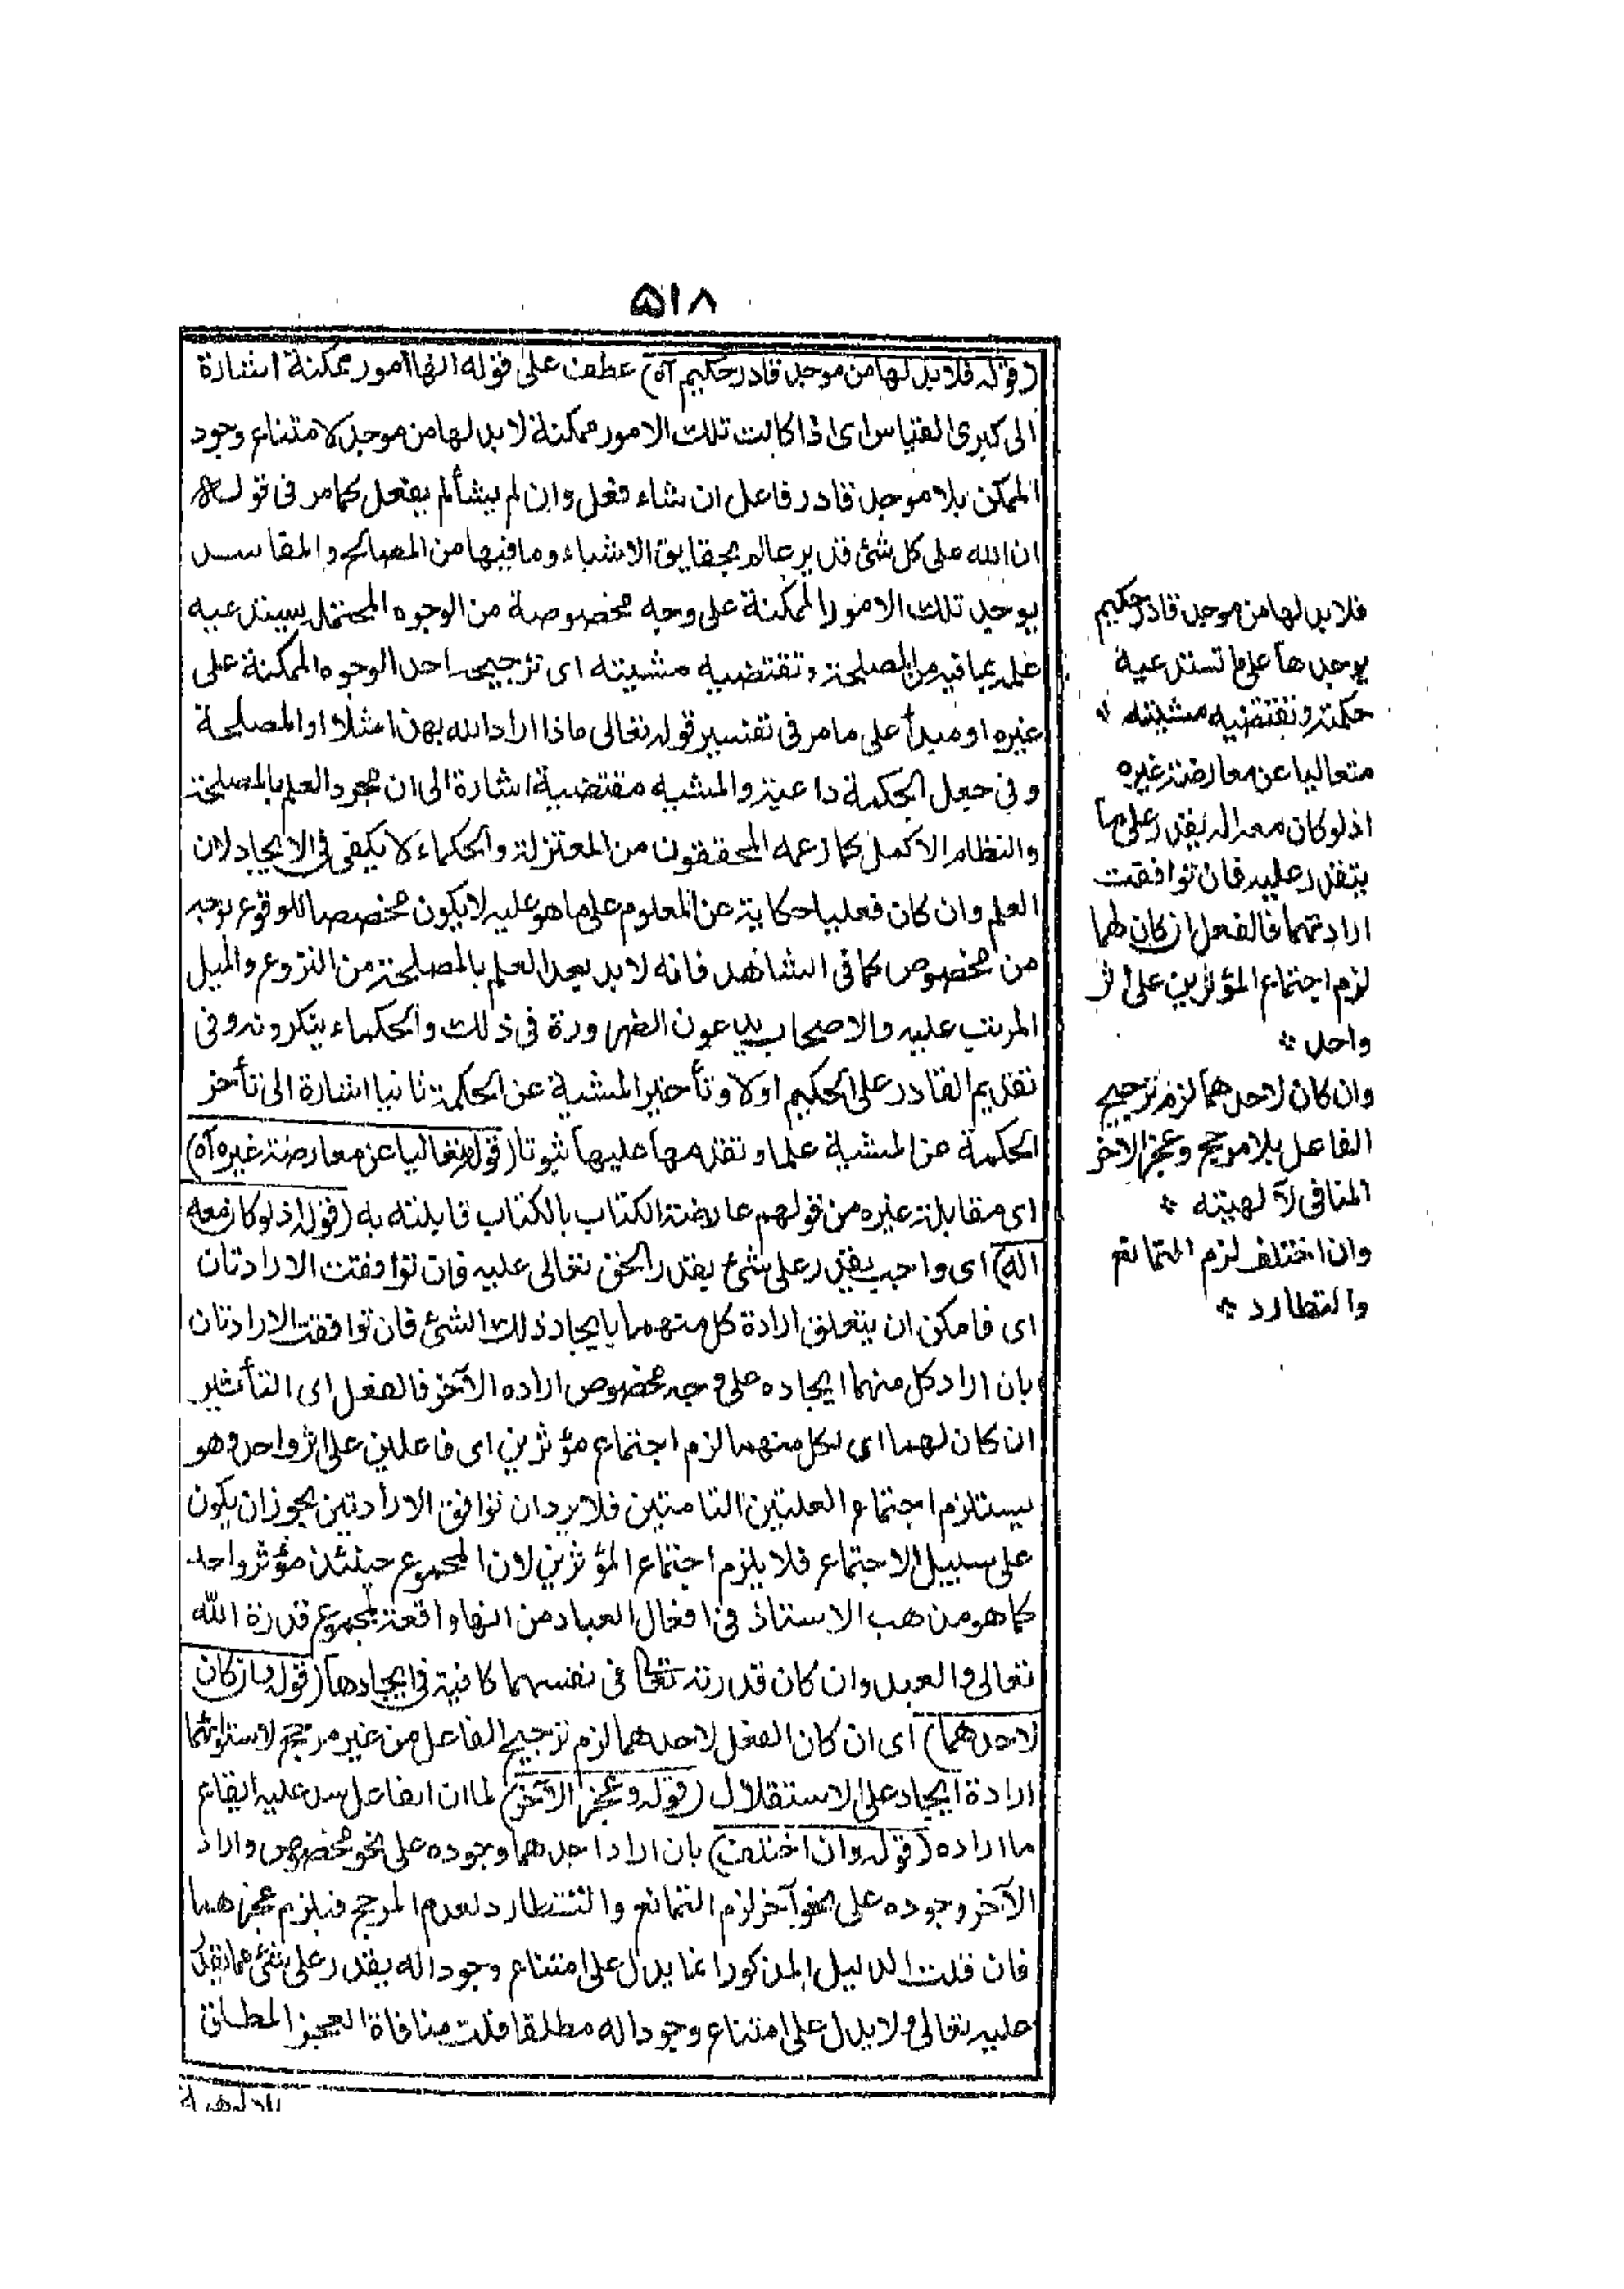 ٥١٨
(قوله فلا بد لها من موجد قادر حكيم آه) عطف على قوله انها امور ممكنة اشارة
الى كبرى القياس اى اذا كانت تلك الامور ممكنة لا بد لها من موجد لامتناع وجود
الممكن بلا موجد قادر فاعل ان شاء فعل وان لم يشأ لم يفعل كما مر فى قوله
ان الله على كل شئ قدير عالم بحقايق الاشياء وما فيها من المصالح والمفاسد
يوجد تلك الامور الممكنة على وجه مخصوصة من الوجوه المحتمل يستدعيه
علمه بما فيه من المصلحة وتقتضيه مشيته اى ترجيح احد الوجوه الممكنة على
غيره او مبدأ على ما مر فى تفسير قوله تعالى ماذا اراد الله بهذا مثلا او المصلحة
وفى جعل الحكمة داعية والمشيه مقتضية اشارة الى ان مجرد العلم بالمصلحة
والنظام الاكمل كما زعمه المحققون من المعتزلة والحكماء لا يكفى فى الايجاد لان
العلم وان كان فعليا حكاية عن المعلوم على ما هو عليه لا يكون مخصصا للوقوع بوجه
من مخصوص كما فى الشاهد فانه لا بد بعد العلم بالمصلحة من النزوع والميل
المرتب عليه والاصحاب يدعون الضرورة فى ذلك والحكماء ينكرونه وفى
تقديم القادر على الحكيم اولا وتأخير المشية عن الحكمة ثانيا اشارة الى تأخر
الحكمة عن المشية علما وتقدمها عليها ثبوتا (قوله متعاليا عن معارضة غيره آه)
اى مقابلة غيره من قولهم عارضت الكتاب بالكتاب قابلته به (قوله اذ لو كان معه
اله) اى واجب يقدر على شئ يقدر الحق تعالى عليه فان توافقت الارادتان
اى فامكن ان يتعلق ارادة كل منهما بايجاد ذلك الشئ فان توافقت الارادتان
بان اراد كل منهما ايجاده على وجه مخصوص اراده الآخر فالفعل اى التأثير
ان كان لهما اى لكل منهما لزم اجتماع مؤثرين اى فاعلين على اثر واحد وهو
يستلزم اجتماع العلتين التامتين فلا يرد ان توافق الارادتين يجوز ان يكون
على سبيل الاجتماع فلا يلزم اجتماع المؤثرين لان المجموع حينئذ مؤثر واحد
كما هو مذهب الاستاذ فى افعال العباد من انها واقعة بمجموع قدرة الله
تعالى والعبد وان كان قدرته تعالى فى نفسها كافية فى ايجادها (قوله وان كان
لاحدهما) اى ان كان الفعل لاحدهما لزم ترجيح الفاعل من غير مرجح لاستوائهما
ارادة ايجاد على الاستقلال (قوله وعجز الآخر) لما ان الفاعل سد عليه ايقاع
ما اراده (قوله وان اختلفت) بان اراد احدهما وجوده على نحو مخصوص واراد
الآخر وجوده على نحو آخر لزم التمانع والتطارد لعدم المرجح فيلزم عجزهما
فان قلت الدليل المذكور انما يدل على امتناع وجود اله يقدر على شئ مما يقدر
عليه تعالى ولا يدل على امتناع وجود اله مطلقا قلت منافاة العجز المطلق
بالالوهية
فلا بد لها من موجد قادر حكيم
يوجدها على ما تستدعيه
حكمته وتقتضيه مشيته *
متعاليا عن معارضة غيره
اذ لو كان معه اله يقدر على ما
يقدر عليه فان توافقت
ارادتهما فالفعل ان كان لهما
لزم اجتماع المؤثرين على اثر
واحد *
وان كان لاحدهما لزم ترجيح
الفاعل بلا مرجح وعجز الاخر
المنافى لآلهيته *
وان اختلف لزم التمانع
والتطارد *